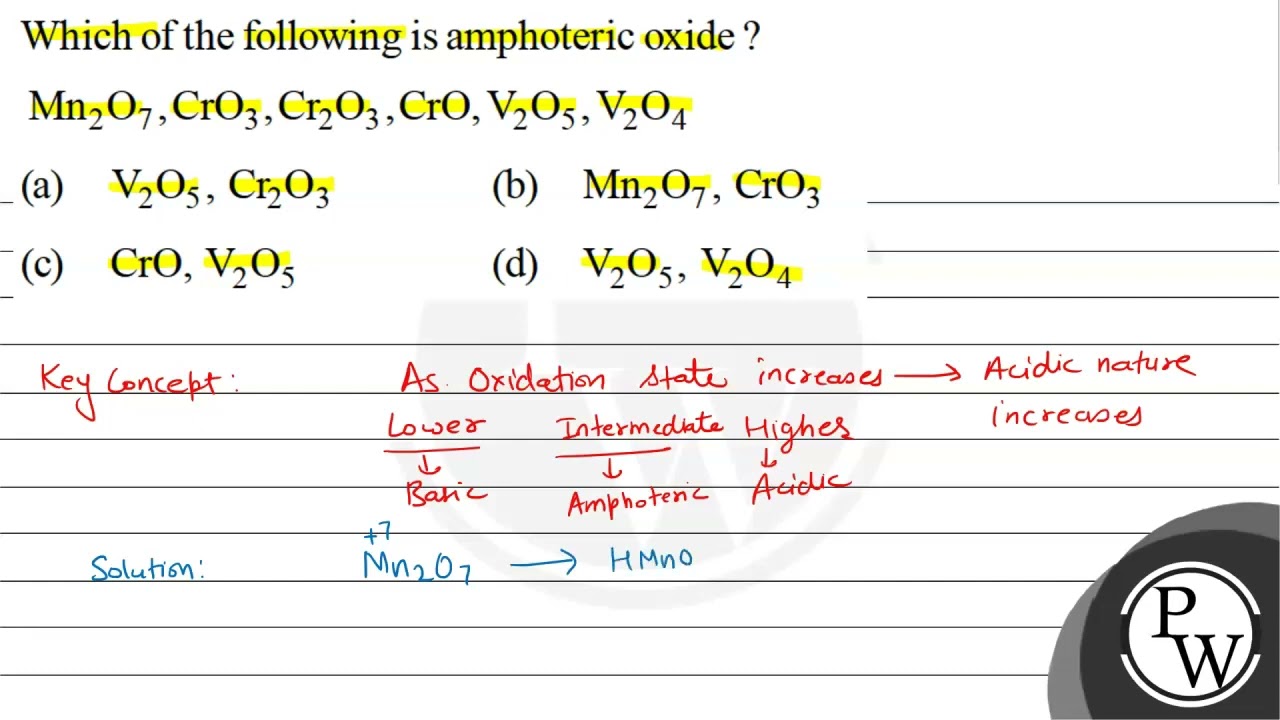 Which of the following is amphoteric oxide ?
Mn₂O₇, CrO₃, Cr₂O₃, CrO, V₂O₅, V₂O₄
(a) V₂O₅, Cr₂O₃ (b) Mn₂O₇, CrO₃
(c) CrO, V₂O₅ (d) V₂O₅, V₂O₄
Key Concept: As Oxidation State increases → Acidic nature
increases
Lower Intermediate Higher
↓ ↓ ↓
Basic Amphoteric Acidic
+7
Solution: Mn₂O₇ → HMnO
P
W